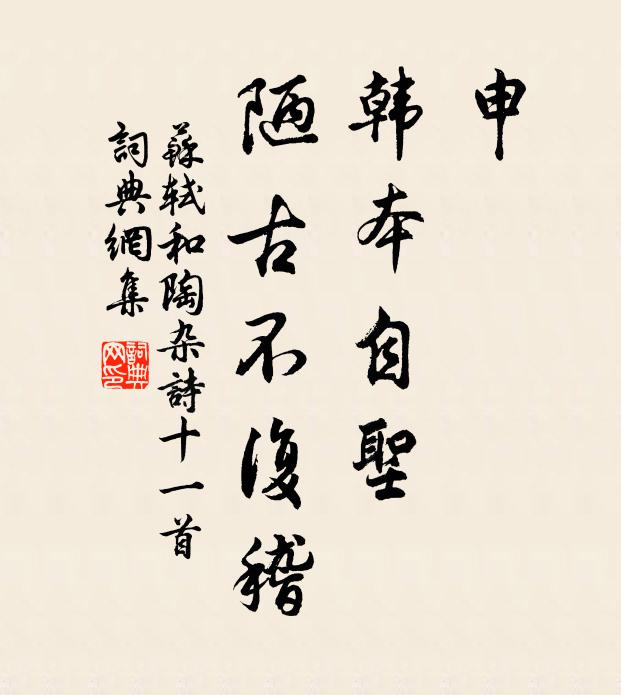 申
韩本自聖
陋古不復稽
蘇軾和陶杂詩十一首
詞典網集
詞典
网印